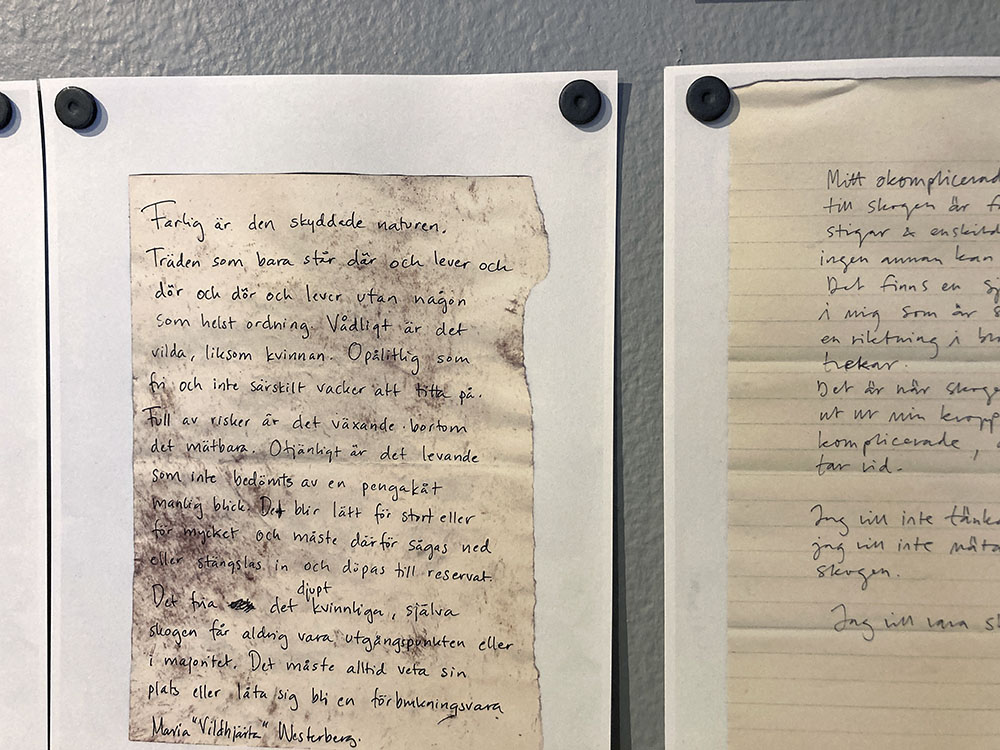 Farlig är den skyddade naturen.
Träden som bara står där och lever och
dör och dör och lever utan någon
som helst ordning. Vådligt är det
vilda, liksom kvinnan. Opålitlig som
fri och inte särskilt vacker att titta på.
Full av risker är det växande bortom
det mätbara. Otjänligt är det levande
som inte bedömts av en pengakåt
manlig blick. Det blir lätt för stort eller
för mycket och måste därför sågas ned
eller stängslas in och döpas till reservat.
Det fria det djupt kvinnliga, själva
skogen får aldrig vara utgångspunkten eller
i majoritet. Det måste alltid veta sin
plats eller låta sig bli en förbrukningsvara
Maria "Vildhjärta" Westerberg.
Mitt okomplicerad
till skogen är
stigar & enskild
ingen annan kan
Det finns en
i mig som är
en riktning i
tvekar.
Det är när skoge
ut ur min kropp
komplicerade,
tar vid.
Jag vill inte tänka
jag vill inte mäta
skogen.
Jag vill vara